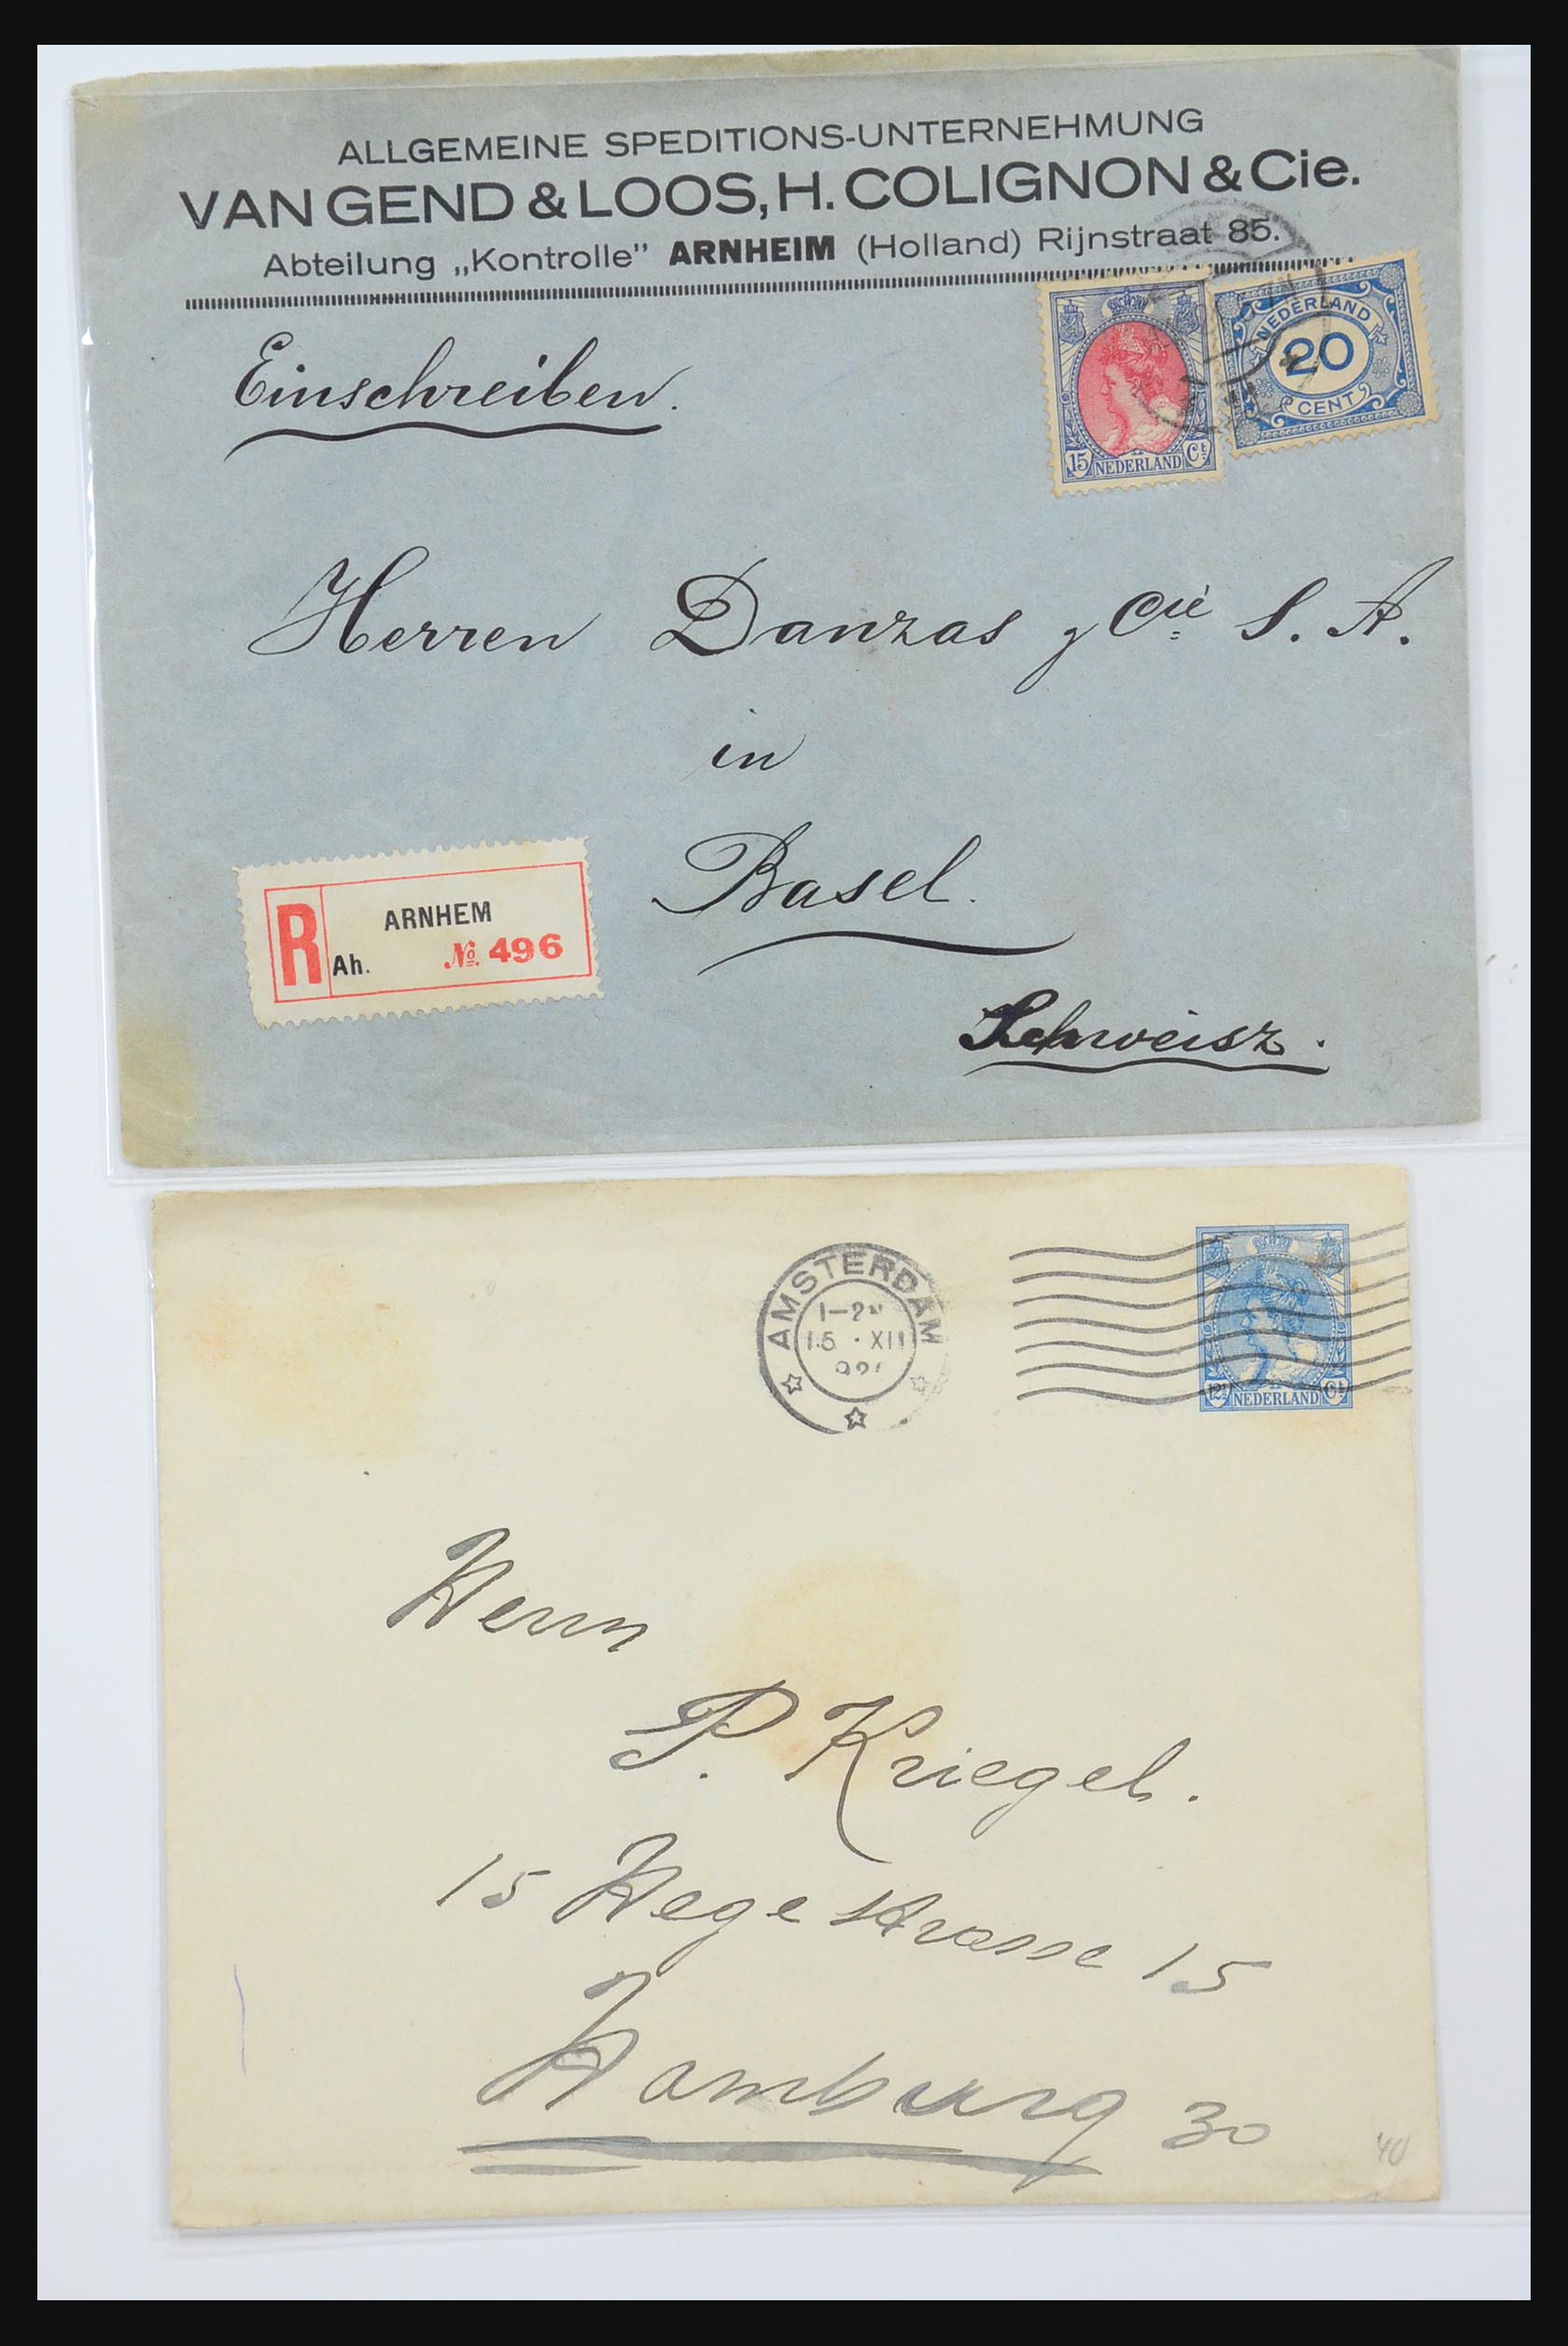 ALLGEMEINE SPEDITIONS-UNTERNEHMUNG
VAN GEND & LOOS, H. COLIGNON & Cie.
Abteilung „Kontrolle” ARNHEIM (Holland) Rijnstraat 85.
Einschreiben.
15 NEDERLAND Ct
NEDERLAND
20
CENT
Herren Danzas & Cie S. A.
in
Basel.
R
ARNHEM
Ah. No. 496
Schweisz.
AMSTERDAM
15 · XII
NEDERLAND Ct
Herrn
P. Kriegel.
15 Wegestrasse 15
Hamburg 30
40